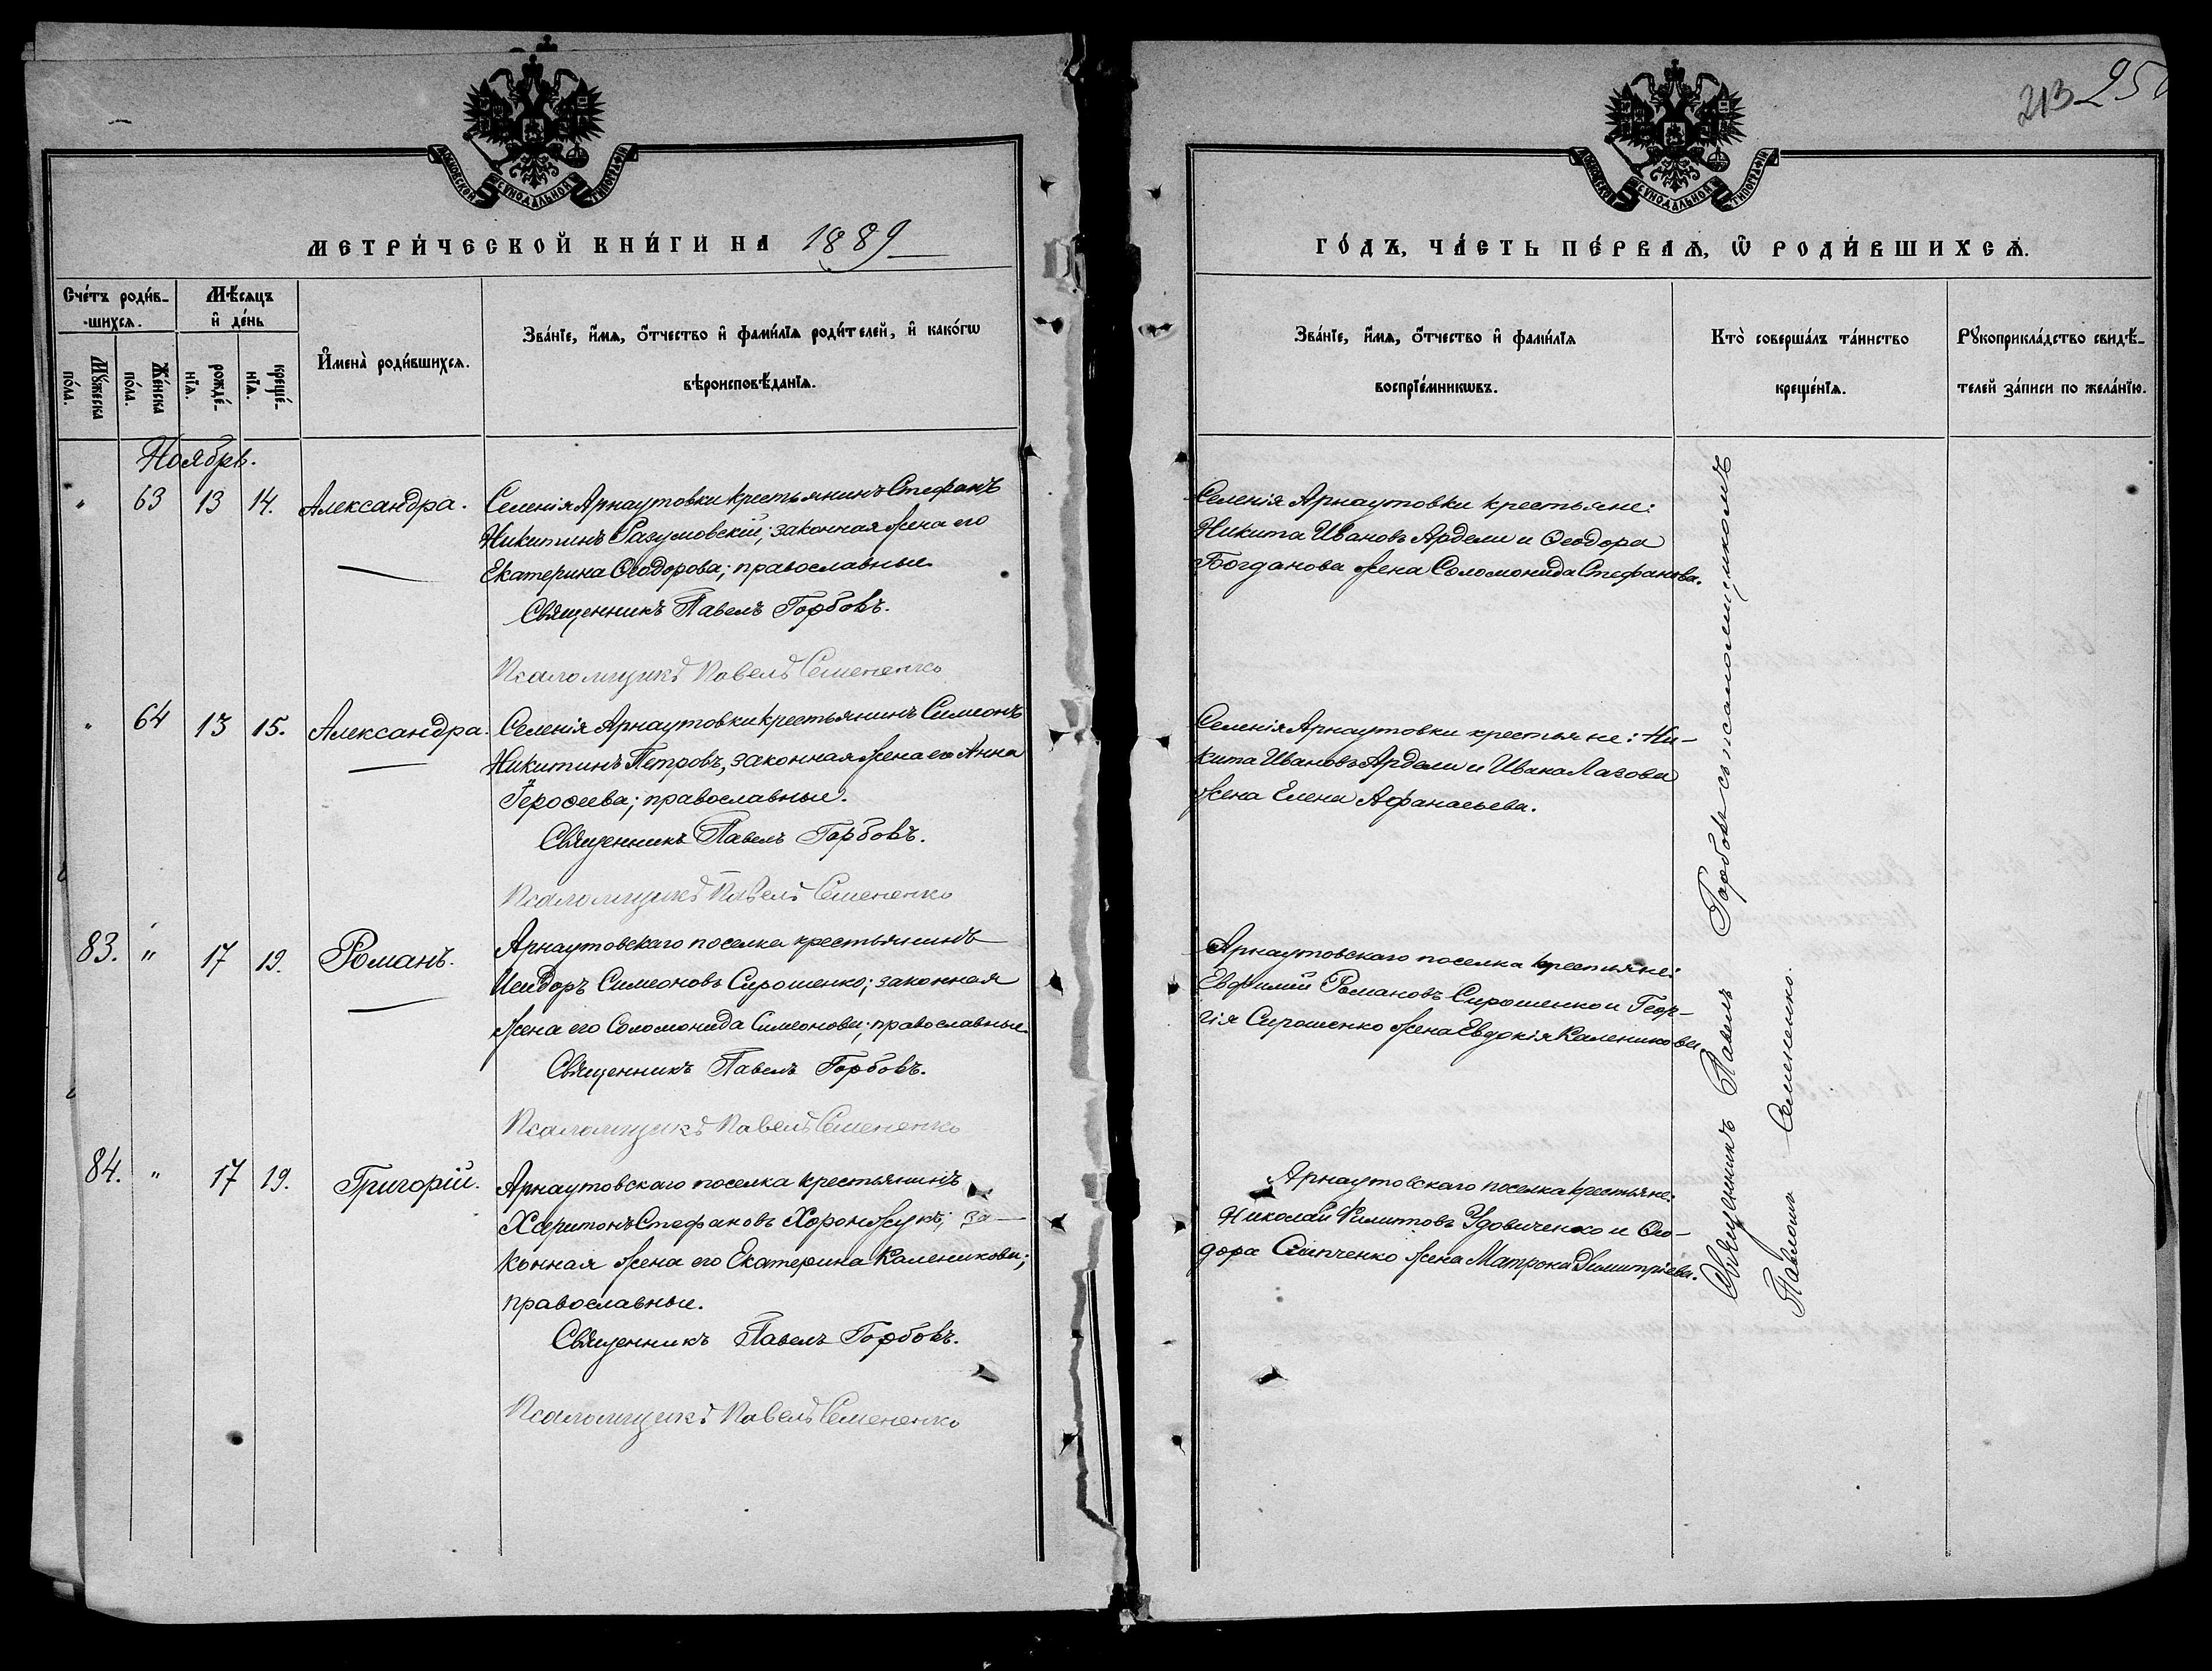 213 25
МОСКОВСКОЙ СѴНОДАЛЬНОЙ ТИПОГРАФІИ
МОСКОВСКОЙ СѴНОДАЛЬНОЙ ТИПОГРАФІИ
МЕТРИ́ЧЕСКОЙ КНИ́ГИ НА 1889
ГО́ДЪ, ЧА́СТЬ ПЕ́РВАѦ, Ѽ РОДИ́ВШИХСѦ.
Сче́тъ роди́в-
-шихсѧ.
Мѣ́сѧцъ
и҆ де́нь
Мꙋ́жеска
по́ла.
Же́нска
по́ла.
рожде́-
нїѧ.
креще́-
нїѧ.
И҆мена̀ роди́вшихсѧ.
Зва́нїе, и҆́мѧ, ѻ҆́тчество и҆ фами́лїѧ роди́телей, и҆ како́гѡ
вѣроисповѣ́данїѧ.
Зва́нїе, и҆́мѧ, ѻ҆́тчество и҆ фами́лїѧ
воспрїе́мникѡвъ.
Кто̀ соверша́лъ та́инство
креще́нїѧ.
Рꙋкоприкла́дство свидѣ́-
телей за́писи по жела́нїю.
Ноябрь.
" 63 13 14. Александра.
Селенія Арнаутовки крестьянинъ Стефанъ
Никитинъ Разумовскій; законная жена его
Екатерина Ѳеодорова; православные
Священникъ Павелъ Горбовъ.
Псаломщикъ Павелъ Семененко
Селенія Арнаутовки крестьяне:
Никита Ивановъ Ардели и Ѳеодора
Богданова жена Соломонида Стефанова.
" 64 13 15. Александра.
Селенія Арнаутовки крестьянинъ Симеонъ
Никитинъ Петровъ, законная жена его Анна
Героѳеева; православные.
Священникъ Павелъ Горбовъ.
Псаломщикъ Павелъ Семененко
Селенія Арнаутовки крестьяне: Ни-
кита Ивановъ Ардели и Ивана Лазова
жена Елена Афанасьева.
83. " 17 19. Романъ.
Арнаутовскаго поселка крестьянинъ
Исидоръ Симеоновъ Сирошенко; законная
жена его Соломонида Симеонова; православные
Священникъ Павелъ Горбовъ.
Псаломщикъ Павелъ Семененко
Арнаутовскаго поселка крестьяне:
Евфимій Романовъ Сирошенко и Геор-
гія Сирошенко жена Евдокія Каленикова.
84. " 17 19. Григорій.
Арнаутовскаго поселка крестьянинъ
Харитонъ Стефановъ Хоронжукъ; за-
конная жена его Екатерина Каленикова;
православные.
Священникъ Павелъ Горбовъ.
Псаломщикъ Павелъ Семененко
Арнаутовскаго поселка крестьяне:
Николай Филипповъ Удовиченко и Ѳео-
дора Сипченко жена Матрона Димитріева.
Священникъ Павелъ Горбовъ съ псаломщикомъ
Павломъ Семененко.